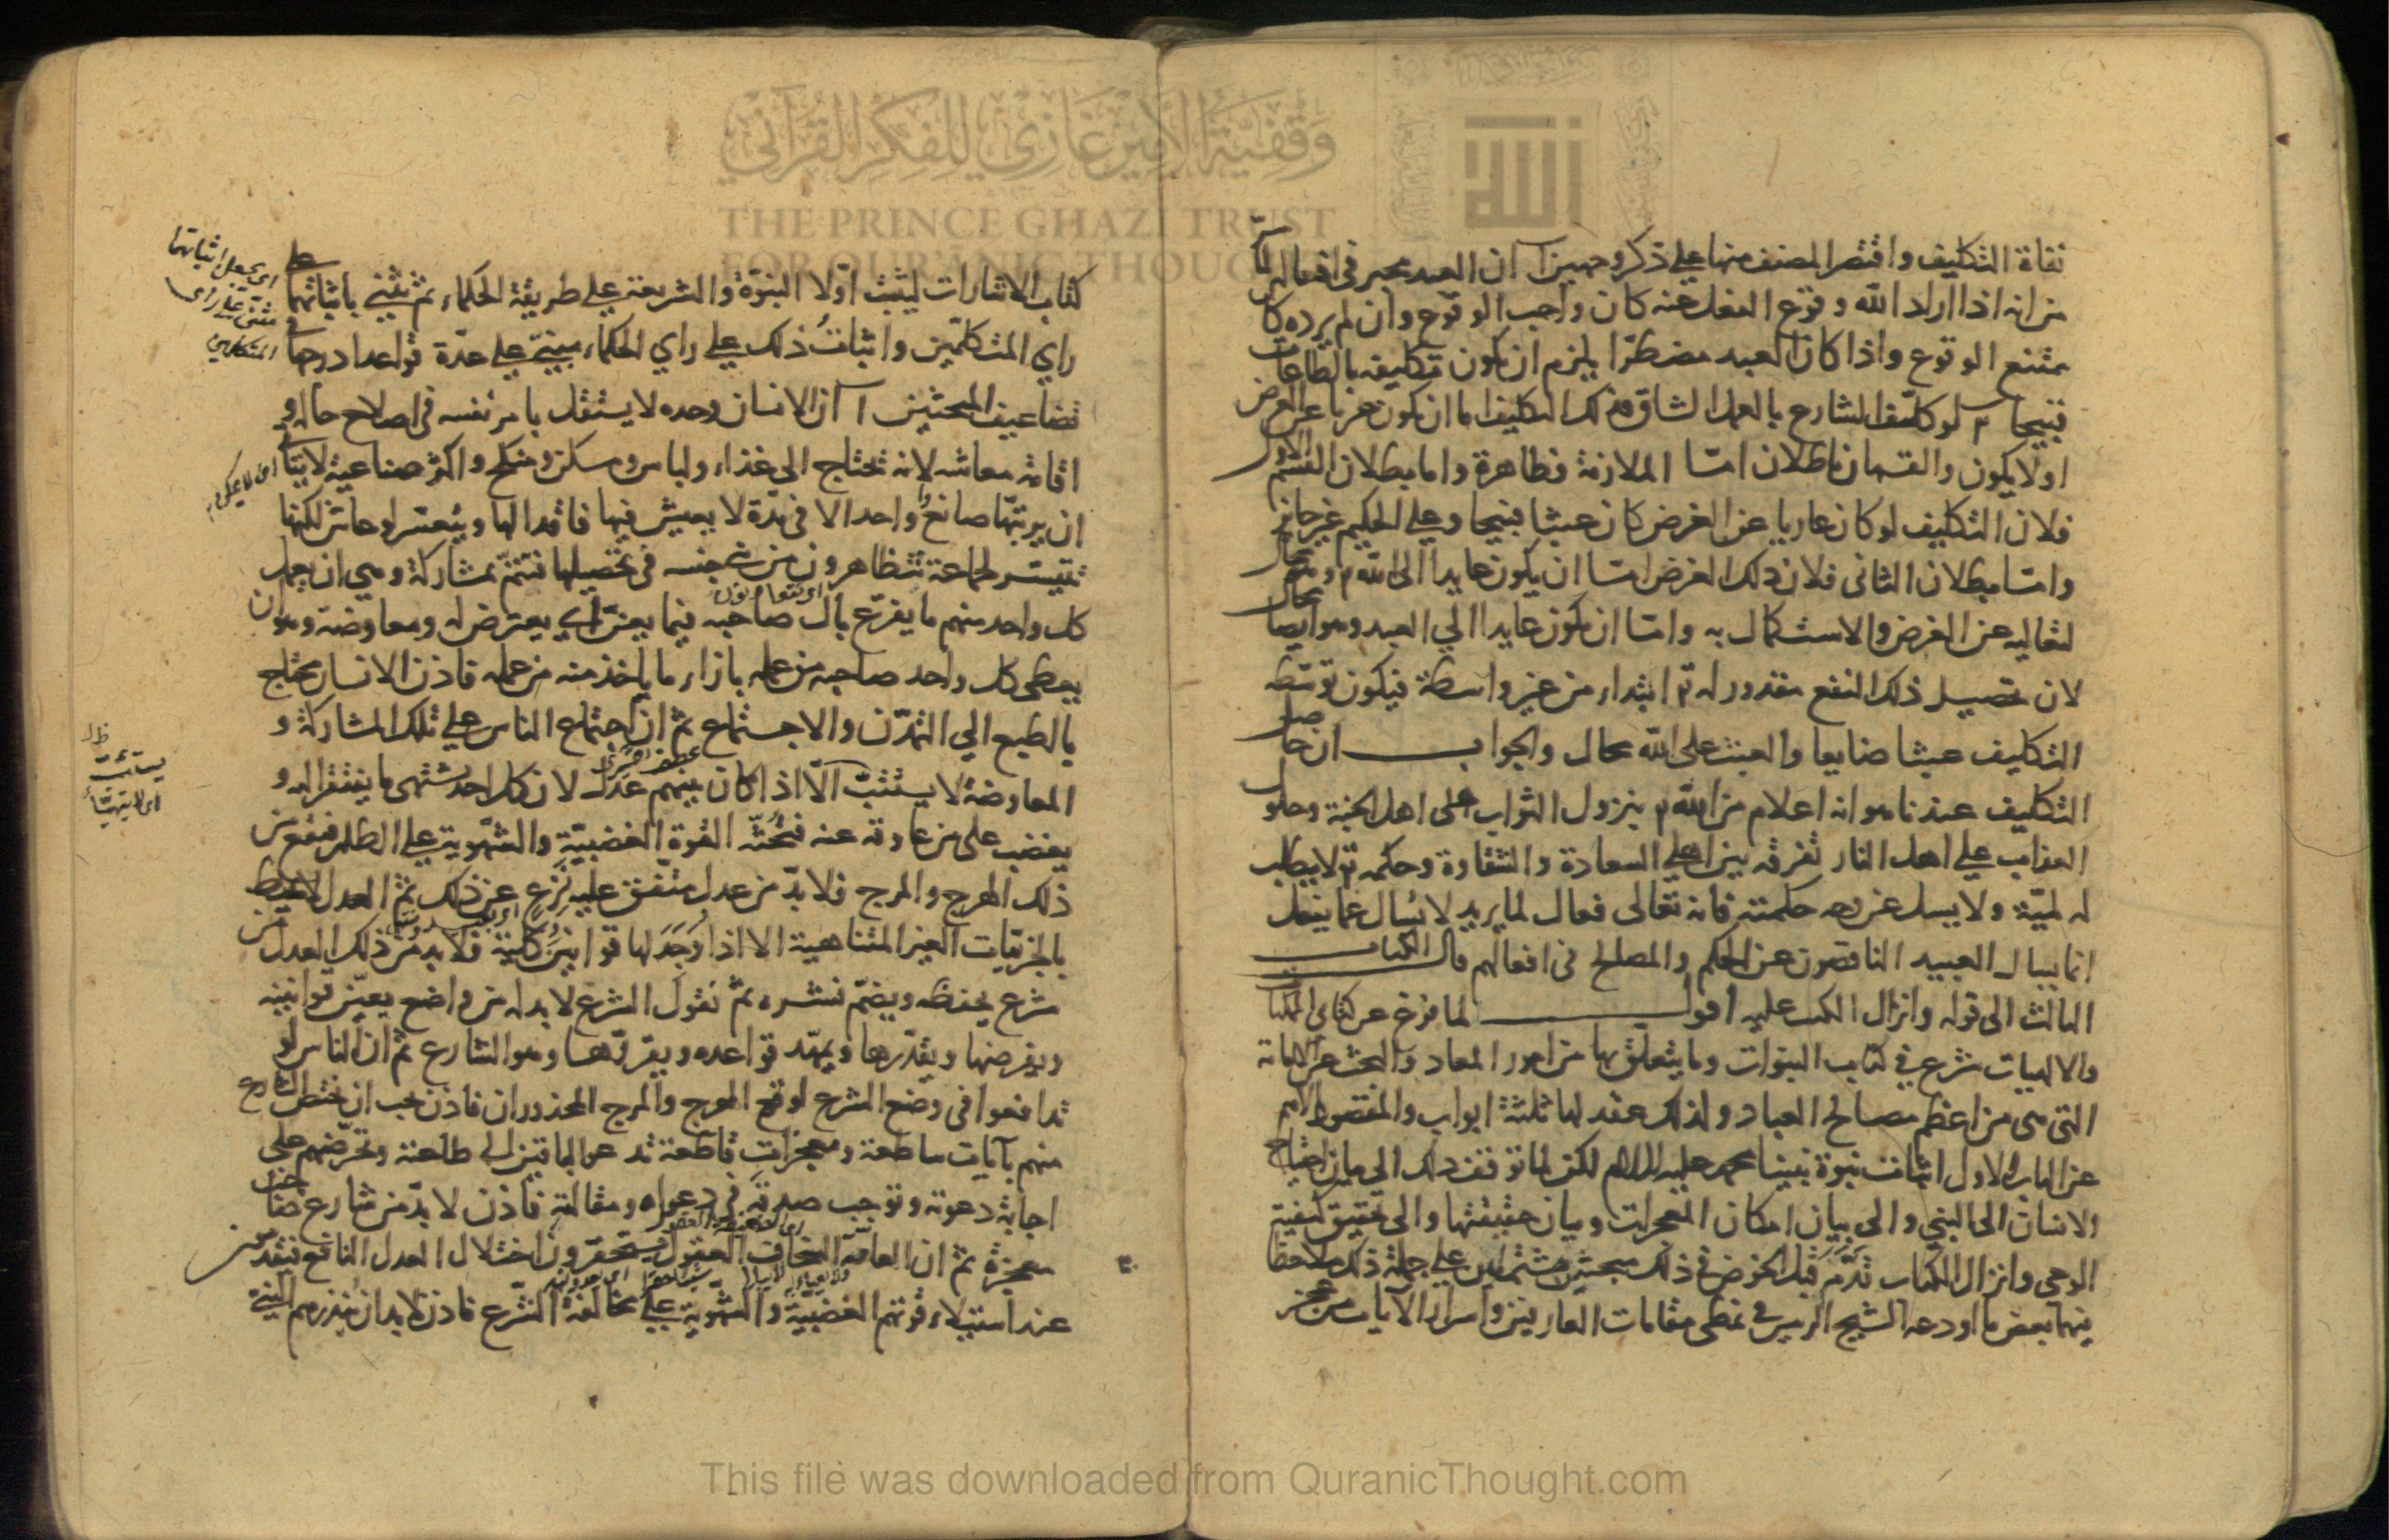 نفاة التكليف واقتصر المصنف منها على ذكر وجهين آ ان العبد مجبر في افعاله لما
مر انه اذا اراد الله وقوع الفعل عنه كان واجب الوقوع وان لم يرده كان
ممتنع الوقوع واذا كان العبد مضطرا يلزم ان يكون تكليفه بالطاعات
قبيحا ٢ لو كلف الشارع بالعمل الشاق فذلك التكليف اما ان يكون عريا عن الغرض
اولا يكون والقسمان باطلان امّا الملازمة فظاهرة واما بطلان القسم الاول
فلان التكليف لو كان عاريا عن الغرض كان عبثا قبيحا وعلى الحكيم غير جايز
وامّا بطلان الثانى فلان ذلك الغرض امّا ان يكون عايدا الى الله تع وهو محال
لتعاليه عن الغرض والاستكمال به وامّا ان يكون عايدا الي العبد وهو ايضا محال
لان تحصيل ذلك النفع مقدور له تع ابتداء من غير واسطة فيكون توسّطه
التكليف عبثا ضايعا والعبث على الله محال والجواب ان حاصل
التكليف عندنا هو انه اعلام من الله تع بنزول الثواب على اهل الجنة وحلول
العذاب علي اهل النار تفرقه بين اهلي السعادة والشقاوة وحكمه تع لا يطلب
له لميّة ولا يسئل عن وجه حكمته فانه تعالى فعال لما يريد لا يُسال عما يفعل
انما يسال العبيد الناقصون عن الحكم والمصالح فى افعالهم قال الكتاب
الثالث الى قوله وانزال الكتب عليه اقول لما فرغ عن كتابى الممكنات
والالهيات شرع في كتاب النبوات وما يتعلق بها من امور المعاد والبحث عن الامامة
التى هى من اعظم مصالح العباد ولذلك عقد لها ثلثة ابواب والمقصود الاهم
عن الباب الاول اثبات نبوة نبينا محمد عليه السلام لكن لما توقف ذلك الى بيان احتياج
الانسان الى النبي والى بيان امكان المعجزات وبيان حقيقتها والى تحقيق كيفية
الوحى وانزال الكتاب قدّم قبل الخوض في ذلك مبحثين مشتملين على جملة ذلك ملاحظا
فيهما بعض ما اودعه الشيخ الرييس في نمطى مقامات العارفين واسرار الآيات من
كتاب الاشارات ليثبت اوّلا النبوّة والشريعة علي طريقة الحكماء ثم يثنى باثباتهما على
راي المتكلّمين واثباتُ ذلك على راي الحكماء مبنىّ علي عدّة قواعد ادرجها في
تضاعيف المبحثين آ ان الانسان وحده لا يستقل بامر نفسه فى اصلاح حاله و
اقامة معاشه لانه يحتاج الى غذاء ولباس ومسكن ومنكح واكثر صناعية لا يتأتى
ان يرتبها صانع واحد الا في مدّة لا يعيش فيها فاقدا لها ويتعسّر لو عاش لكنها
تتيسّر لجماعة يتظاهرون من جنسه فى تحصيلها فتتمّ بمشاركة وهي ان يعمل
اى يتعاونون
كل واحد منهم ما يفرّغ بال صاحبه فيما يعنّ له اي يعترض له ومعاوضة وهو ان
يعطى كل واحد صاحبه من عمله بازاء ما ياخذ منه من عمله فاذن الانسان محتاج
بالطبع الي التمدّن والاجتماع ثم ان اجتماع الناس علي تلك المشاركة و
المعاوضة لا يستتبّ الّا اذا كان بينهم عدل لان كل احد يشتهى ما يفتقر اليه و
يغضب على من عاوقه عنه فتحُثّه القوة الغضبيّة والشهوية على الظلم فيقع من
ذلك الهرج والمرج فلا بدّ من عدل متّفق عليه نزع عن ذلك ثمّ العدل لا يحيط
بالجزئيات الغير المتناهية الا اذا وُجد لها قوانين كليّة فلا بد من ذلك العدل من
شرع يحفظه ثمّ نقول الشرع لا بد له من واضع يعيّن قوانينه
ويفرضها ويقدّرها ويمهّد قواعده ويقرّرها وهو الشارع ثم ان الناس لو
تدافعوا فى وضع الشرع لوقع الهرج والمرج المحذور ان فاذن يجب ان يختص الشارع
منهم بآيات ساطعة ومعجزات قاطعة تدعو الباقين الى طاعته وتحرّضهم على
اجابة دعوته وتوجب صدقه في دعواه ومقالته فاذن لا بدّ من شارع صاحب
معجزة ثم ان العامّة السخاف العقول يستحقرون اختلال العدل النافع
عند استيلاء قوتهم الغضبيّة والشهوية علي مخالفة الشرع فاذن لا بد ان
اى يجعل اثباتها
مثنى علي راى
المتكلمين
اى لا يمكن
يستتب
اى لا يتهيّأ
وقفية الأمير غازي للفكر القرآني
THE PRINCE GHAZI TRUST
FOR QUR'ANIC THOUGHT
الله
This file was downloaded from QuranicThought.com